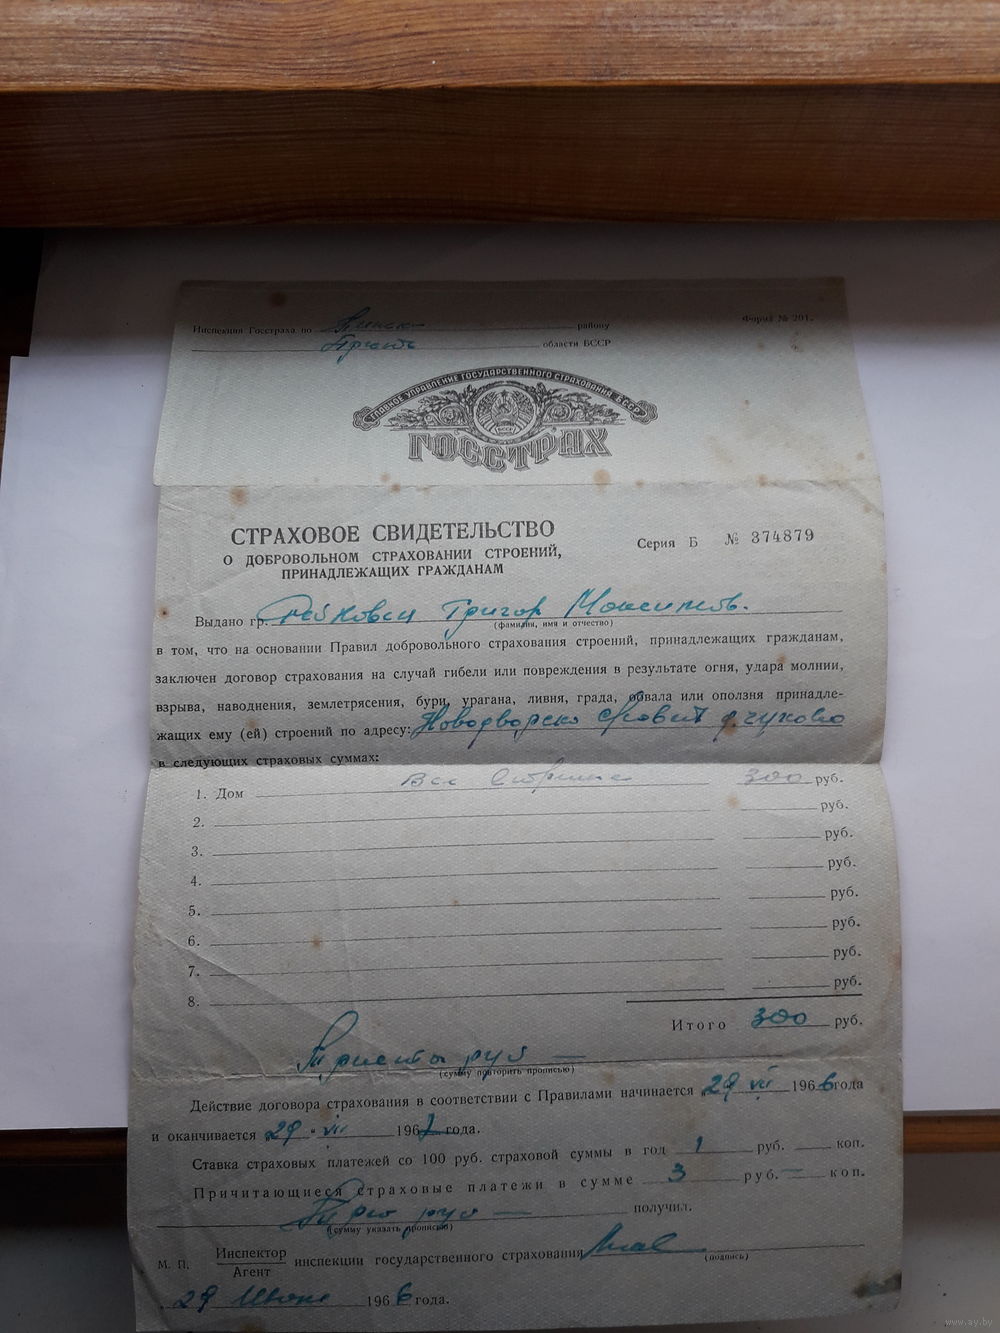 Инспекция Госстраха по Пинск району
Форма № 201.
области БССР
ГЛАВНОЕ УПРАВЛЕНИЕ ГОСУДАРСТВЕННОГО СТРАХОВАНИЯ БССР
БССР
ГОССТРАХ
СТРАХОВОЕ СВИДЕТЕЛЬСТВО
О ДОБРОВОЛЬНОМ СТРАХОВАНИИ СТРОЕНИЙ,
ПРИНАДЛЕЖАЩИХ ГРАЖДАНАМ
Серия Б № 374879
Выдано гр. Григор
(фамилия, имя и отчество)
в том, что на основании Правил добровольного страхования строений, принадлежащих гражданам,
заключен договор страхования на случай гибели или повреждения в результате огня, удара молнии,
взрыва, наводнения, землетрясения, бури, урагана, ливня, града, обвала или оползня принадле-
жащих ему (ей) строений по адресу: Новодворско д. чухово
в следующих страховых суммах:
1. Дом 300 руб.
2. руб.
3. руб.
4. руб.
5. руб.
6. руб.
7. руб.
8. руб.
Итого 300 руб.
руб —
(сумму повторить прописью)
Действие договора страхования в соответствии с Правилами начинается „29 VII 1966 года
и оканчивается „29 “ VII 1967 года.
Ставка страховых платежей со 100 руб. страховой суммы в год 1 руб. коп.
Причитающиеся страховые платежи в сумме 3 руб. — коп.
Три руб — получил.
(сумму указать прописью)
М. П. Инспектор
Агент инспекции государственного страхования
(подпись)
29 1966 года.
www.ay.by